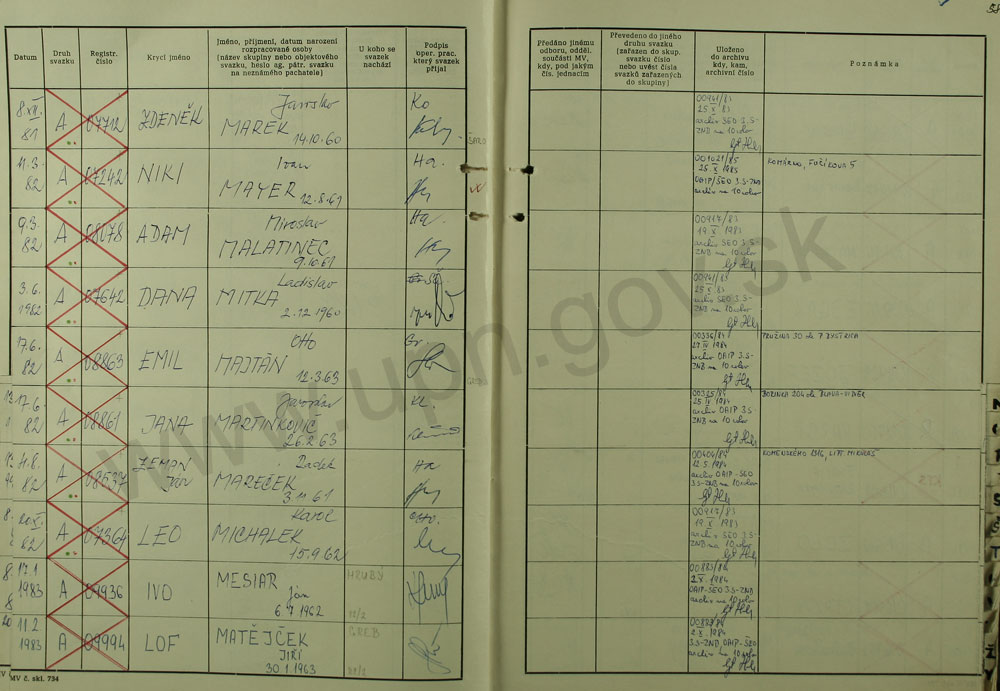 Datum
Druh svazku
Registr. číslo
Krycí jméno
Jméno, příjmení, datum narození
rozpracované osoby
(název skupiny nebo objektového
svazku, heslo ag. pátr. svazku
na neznámého pachatele)
U koho se
svazek
nachází
Podpis
oper. prac.
který svazek
přijal
Předáno jinému
odboru, odděl.
součásti MV,
kdy, pod jakým
čís. jednacím
Převedeno do jiného
druhu svazku
(zařazen do skup.
svazku číslo
nebo uvést čísla
svazků zařazených
do skupiny)
Uloženo
do archivu
kdy, kam,
archivní číslo
Poznámka
8.XII. 81 A 07712 ZDENĚK Jaroslav
MAREK 14.10.60
00941/83
25 X 83
archiv SEO 3.S-
ZNB na 10 rokov
11.3. 82 A 07242 NIKI Ivan
MAYER 12.8.61
Ha.
001021/85
25. X 1985
OAIP/SEO 3.S-ZNB
archiv na 10 rokov
KOMÁRNO, FUČÍKOVA 5
9.3. 82 A 08078 ADAM Miroslav
MALATINEC
9.10.61
Ha.
00917/83
19 X 1983
archiv SEO 3.S-
ZNB na 10 rokov
3.6. 1982 A 07642 DANA Ladislav
MITKA
2.12.1960
00941/83
25 X 83
archiv SEO 3.S-
ZNB na 10 rokov
17.6. 82 A 08863 EMIL Otto
MAJTÁN
12.3.63
00336/84
27 IV 1984
archiv OAIP 3.S-
ZNB na 10 rokov
PRUŽINA 30 ok. P. BYSTRICA
17.6. 82 A 08861 JANA Jaroslav
MARTINKOVIČ
26.2.63
00325/84
25 IV 1984
archiv OAIP 3.S
ZNB na 10 rokov
BORINKA 204 ok. BRAVA-VIDIER
11.8. 82 A 08537 ZEMAN
Ján Radek
MAREČEK
3.11.61
Ha
00404/84
12.5.1984
archiv OAIP-SEO
3.S-ZNB na 10 rokov
KOMENSKÉHO 1316, LIPT. MIKULÁŠ
20.XI. 82 A 07364 LEO Karol
MICHALEK
15.9.62
00917/83
19 X 1983
archiv SEO 3.S-
ZNB na 10 rokov
17.1 1983 A 09936 IVO MESIAR
Ján
6 4 1962
HRUBÝ
2.X. 1984
OAIP-SEO 3.S-ZNB
archiv na 10 rokov
11.2. 1983 A 09994 LOF MATĚJČEK
JIŘÍ
30.1.1963
GREB
2.X. 1984
3.S-ZNB, OAIP-SEO
archiv na 10 rokov
MV č. skl. 734
www.upn.gov.sk